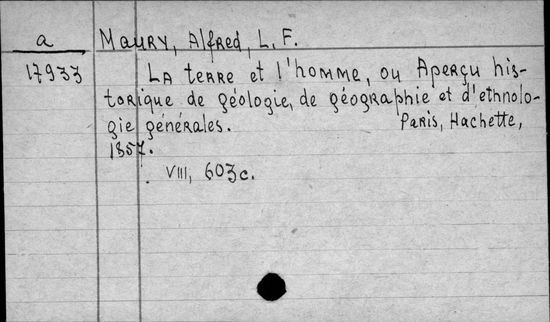 a Maury, Alfred, L. F.
17933 La terre et l'homme, ou Aperçu his-
torique de géologie, de géographie et d'ethnolo-
gie générales. Paris, Hachette,
1857.
VIII, 603 c.